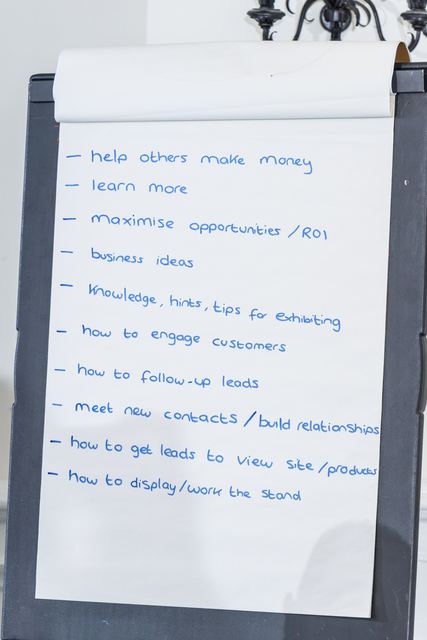 - help others make money
- learn more
- maximise opportunities / ROI
- business ideas
- Knowledge, hints, tips for exhibiting
- how to engage customers
- how to follow-up leads
- meet new contacts / build relationships
- how to get leads to view site / products
- how to display / work the stand